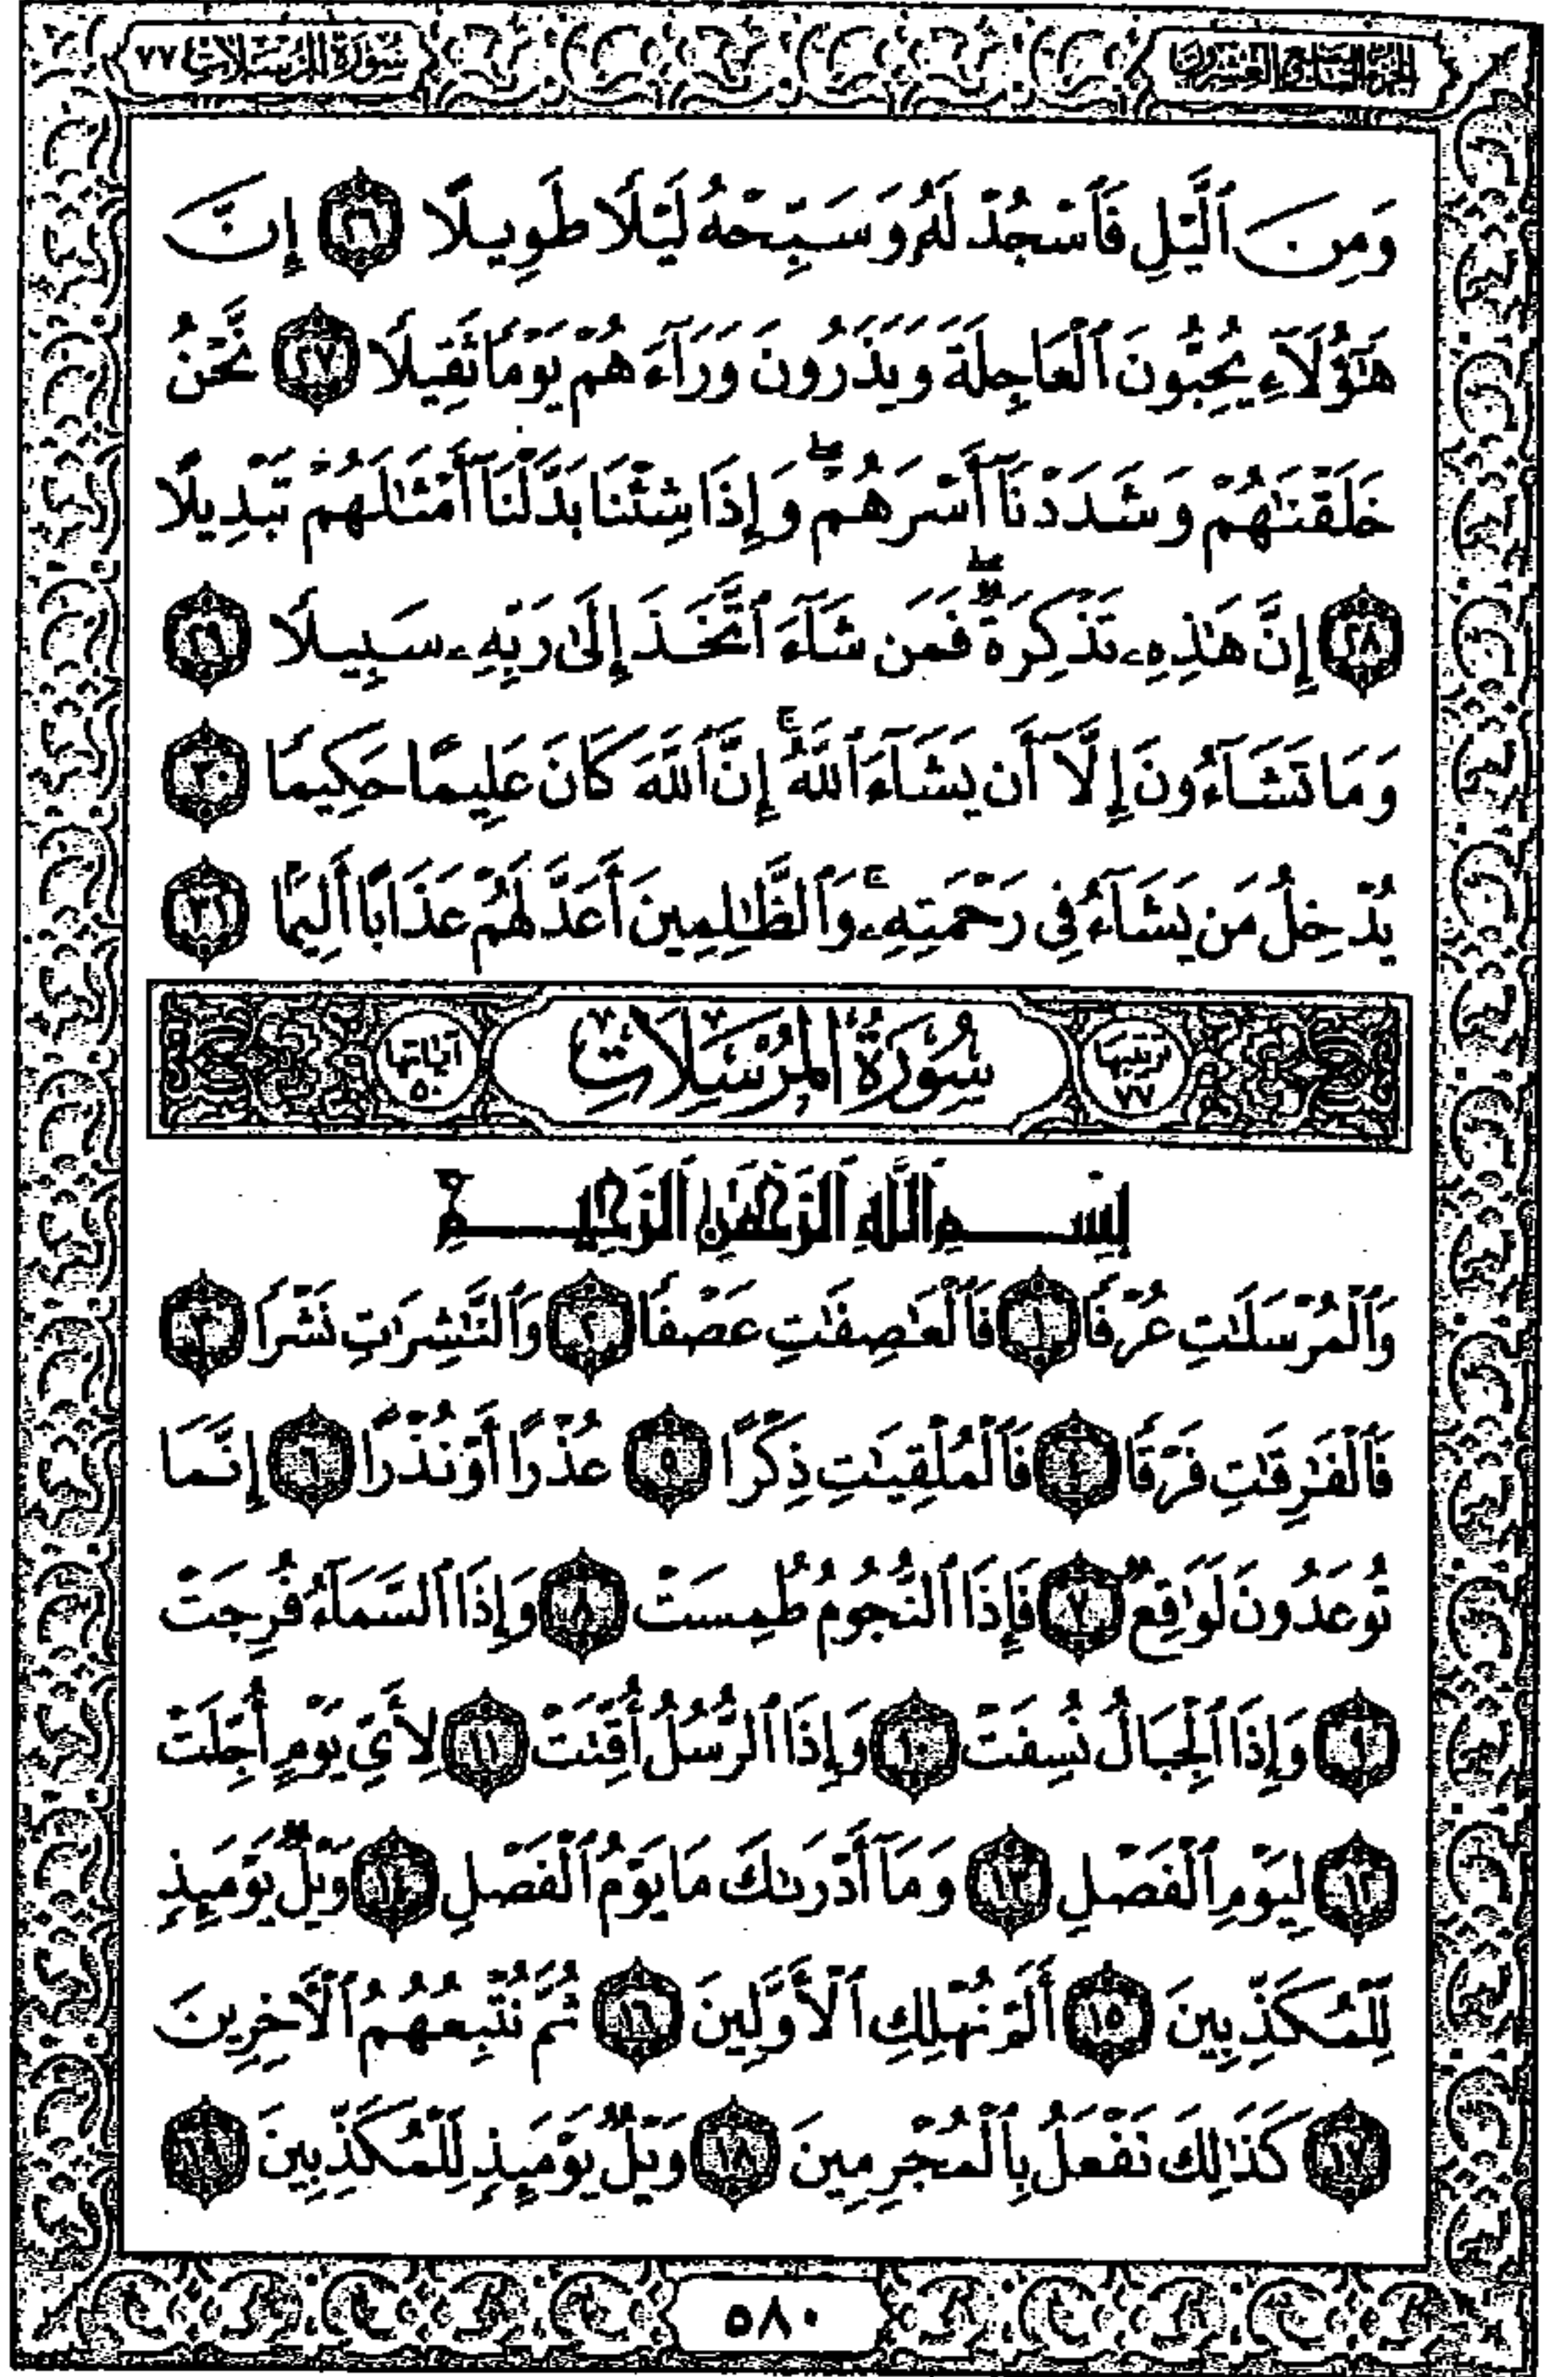 الجزء التاسع والعشرون
سُورَةُ المُرْسَلَاتِ ٧٧
وَمِنَ ٱلَّيْلِ فَٱسْجُدْ لَهُۥ وَسَبِّحْهُ لَيْلًا طَوِيلًا ٢٦ إِنَّ
هَٰٓؤُلَآءِ يُحِبُّونَ ٱلْعَاجِلَةَ وَيَذَرُونَ وَرَآءَهُمْ يَوْمًا ثَقِيلًا ٢٧ نَّحْنُ
خَلَقْنَٰهُمْ وَشَدَدْنَآ أَسْرَهُمْ ۖ وَإِذَا شِئْنَا بَدَّلْنَآ أَمْثَٰلَهُمْ تَبْدِيلًا
٢٨ إِنَّ هَٰذِهِۦ تَذْكِرَةٌ ۖ فَمَن شَآءَ ٱتَّخَذَ إِلَىٰ رَبِّهِۦ سَبِيلًا ٢٩
وَمَا تَشَآءُونَ إِلَّآ أَن يَشَآءَ ٱللَّهُ ۚ إِنَّ ٱللَّهَ كَانَ عَلِيمًا حَكِيمًا ٣٠
يُدْخِلُ مَن يَشَآءُ فِى رَحْمَتِهِۦ ۚ وَٱلظَّٰلِمِينَ أَعَدَّ لَهُمْ عَذَابًا أَلِيمًۢا ٣١
ترتيبها ٧٧ سُورَةُ المُرْسَلَاتِ آياتها ٥٠
بِسْمِ ٱللَّهِ ٱلرَّحْمَٰنِ ٱلرَّحِيمِ
وَٱلْمُرْسَلَٰتِ عُرْفًا ١ فَٱلْعَٰصِفَٰتِ عَصْفًا ٢ وَٱلنَّٰشِرَٰتِ نَشْرًا ٣
فَٱلْفَٰرِقَٰتِ فَرْقًا ٤ فَٱلْمُلْقِيَٰتِ ذِكْرًا ٥ عُذْرًا أَوْ نُذْرًا ٦ إِنَّمَا
تُوعَدُونَ لَوَٰقِعٌ ٧ فَإِذَا ٱلنُّجُومُ طُمِسَتْ ٨ وَإِذَا ٱلسَّمَآءُ فُرِجَتْ
٩ وَإِذَا ٱلْجِبَالُ نُسِفَتْ ١٠ وَإِذَا ٱلرُّسُلُ أُقِّتَتْ ١١ لِأَىِّ يَوْمٍ أُجِّلَتْ
١٢ لِيَوْمِ ٱلْفَصْلِ ١٣ وَمَآ أَدْرَىٰكَ مَا يَوْمُ ٱلْفَصْلِ ١٤ وَيْلٌ يَوْمَئِذٍ
لِّلْمُكَذِّبِينَ ١٥ أَلَمْ نُهْلِكِ ٱلْأَوَّلِينَ ١٦ ثُمَّ نُتْبِعُهُمُ ٱلْءَاخِرِينَ
١٧ كَذَٰلِكَ نَفْعَلُ بِٱلْمُجْرِمِينَ ١٨ وَيْلٌ يَوْمَئِذٍ لِّلْمُكَذِّبِينَ ١٩
٥٨٠